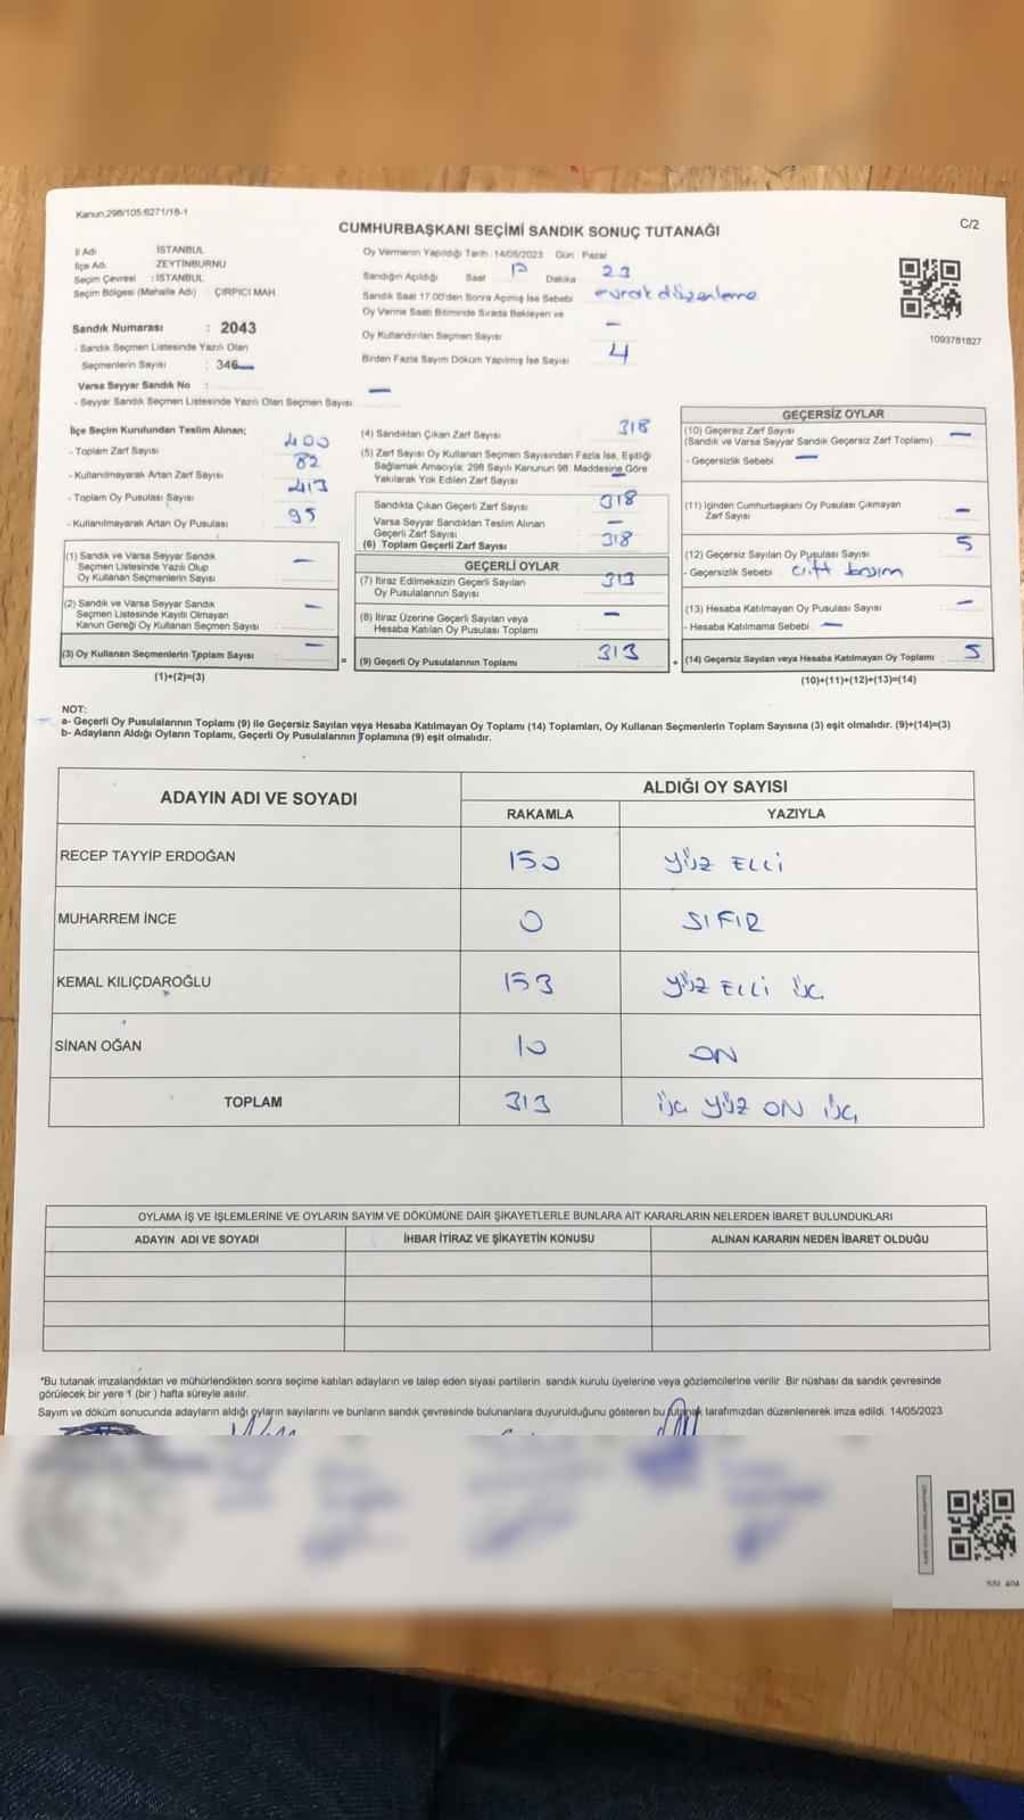 Kanun.298/105:6271/18-1
C/2
CUMHURBAŞKANI SEÇİMİ SANDIK SONUÇ TUTANAĞI
İl Adı İSTANBUL
İlçe Adı ZEYTİNBURNU
Seçim Çevresi : İSTANBUL
Seçim Bölgesi (Mahalle Adı) ÇIRPICI MAH.
Sandık Numarası : 2043
- Sandık Seçmen Listesinde Yazılı Olan
Seçmenlerin Sayısı : 346
Varsa Seyyar Sandık No :
- Seyyar Sandık Seçmen Listesinde Yazılı Olan Seçmen Sayısı —
Oy Vermenin Yapıldığı Tarih :14/05/2023 Gün : Pazar
Sandığın Açıldığı Saat 17 Dakika 23
Sandık Saat 17.00'den Sonra Açılmış İse Sebebi evrak düzenleme
Oy Verme Saati Bitiminde Sırada Bekleyen ve
Oy Kullandırılan Seçmen Sayısı —
Birden Fazla Sayım Döküm Yapılmış İse Sayısı 4
1093781827
İlçe Seçim Kurulundan Teslim Alınan;
- Toplam Zarf Sayısı 400
- Kullanılmayarak Artan Zarf Sayısı 82
- Toplam Oy Pusulası Sayısı 413
- Kullanılmayarak Artan Oy Pusulası 95
(1) Sandık ve Varsa Seyyar Sandık
Seçmen Listesinde Yazılı Olup
Oy Kullanan Seçmenlerin Sayısı —
(2) Sandık ve Varsa Seyyar Sandık
Seçmen Listesinde Kayıtlı Olmayan
Kanun Gereği Oy Kullanan Seçmen Sayısı —
(3) Oy Kullanan Seçmenlerin Toplam Sayısı —
(1)+(2)=(3)
(4) Sandıktan Çıkan Zarf Sayısı 318
(5) Zarf Sayısı Oy Kullanan Seçmen Sayısından Fazla İse, Eşitliği
Sağlamak Amacıyla; 298 Sayılı Kanunun 98. Maddesine Göre
Yakılarak Yok Edilen Zarf Sayısı —
Sandıkta Çıkan Geçerli Zarf Sayısı 318
Varsa Seyyar Sandıktan Teslim Alınan
Geçerli Zarf Sayısı —
(6) Toplam Geçerli Zarf Sayısı 318
GEÇERLİ OYLAR
(7) İtiraz Edilmeksizin Geçerli Sayılan
Oy Pusulalarının Sayısı 313
(8) İtiraz Üzerine Geçerli Sayılan veya
Hesaba Katılan Oy Pusulası Toplamı —
= (9) Geçerli Oy Pusulalarının Toplamı 313
GEÇERSİZ OYLAR
(10) Geçersiz Zarf Sayısı
(Sandık ve Varsa Seyyar Sandık Geçersiz Zarf Toplamı) —
- Geçersizlik Sebebi —
(11) İçinden Cumhurbaşkanı Oy Pusulası Çıkmayan
Zarf Sayısı —
(12) Geçersiz Sayılan Oy Pusulası Sayısı 5
- Geçersizlik Sebebi çift basım
(13) Hesaba Katılmayan Oy Pusulası Sayısı —
- Hesaba Katılmama Sebebi —
+ (14) Geçersiz Sayılan veya Hesaba Katılmayan Oy Toplamı 5
(10)+(11)+(12)+(13)=(14)
NOT:
a- Geçerli Oy Pusulalarının Toplamı (9) ile Geçersiz Sayılan veya Hesaba Katılmayan Oy Toplamı (14) Toplamları, Oy Kullanan Seçmenlerin Toplam Sayısına (3) eşit olmalıdır. (9)+(14)=(3)
b- Adayların Aldığı Oyların Toplamı, Geçerli Oy Pusulalarının Toplamına (9) eşit olmalıdır.
ADAYIN ADI VE SOYADI
ALDIĞI OY SAYISI
RAKAMLA YAZIYLA
RECEP TAYYİP ERDOĞAN 150 YÜZ ELLİ
MUHARREM İNCE 0 SIFIR
KEMAL KILIÇDAROĞLU 153 YÜZ ELLİ ÜÇ
SİNAN OĞAN 10 ON
TOPLAM 313 ÜÇ YÜZ ON ÜÇ
OYLAMA İŞ VE İŞLEMLERİNE VE OYLARIN SAYIM VE DÖKÜMÜNE DAİR ŞİKAYETLERLE BUNLARA AİT KARARLARIN NELERDEN İBARET BULUNDUKLARI
ADAYIN ADI VE SOYADI İHBAR İTİRAZ VE ŞİKAYETİN KONUSU ALINAN KARARIN NEDEN İBARET OLDUĞU
*Bu tutanak imzalandıktan ve mühürlendikten sonra seçime katılan adayların ve talep eden siyasi partilerin sandık kurulu üyelerine veya gözlemcilerine verilir. Bir nüshası da sandık çevresinde
görülecek bir yere 1 (bir ) hafta süreyle asılır.
Sayım ve döküm sonucunda adayların aldığı oyların sayılarını ve bunların sandık çevresinde bulunanlara duyurulduğunu gösteren bu tutanak tarafımızdan düzenlenerek imza edildi. 14/05/2023